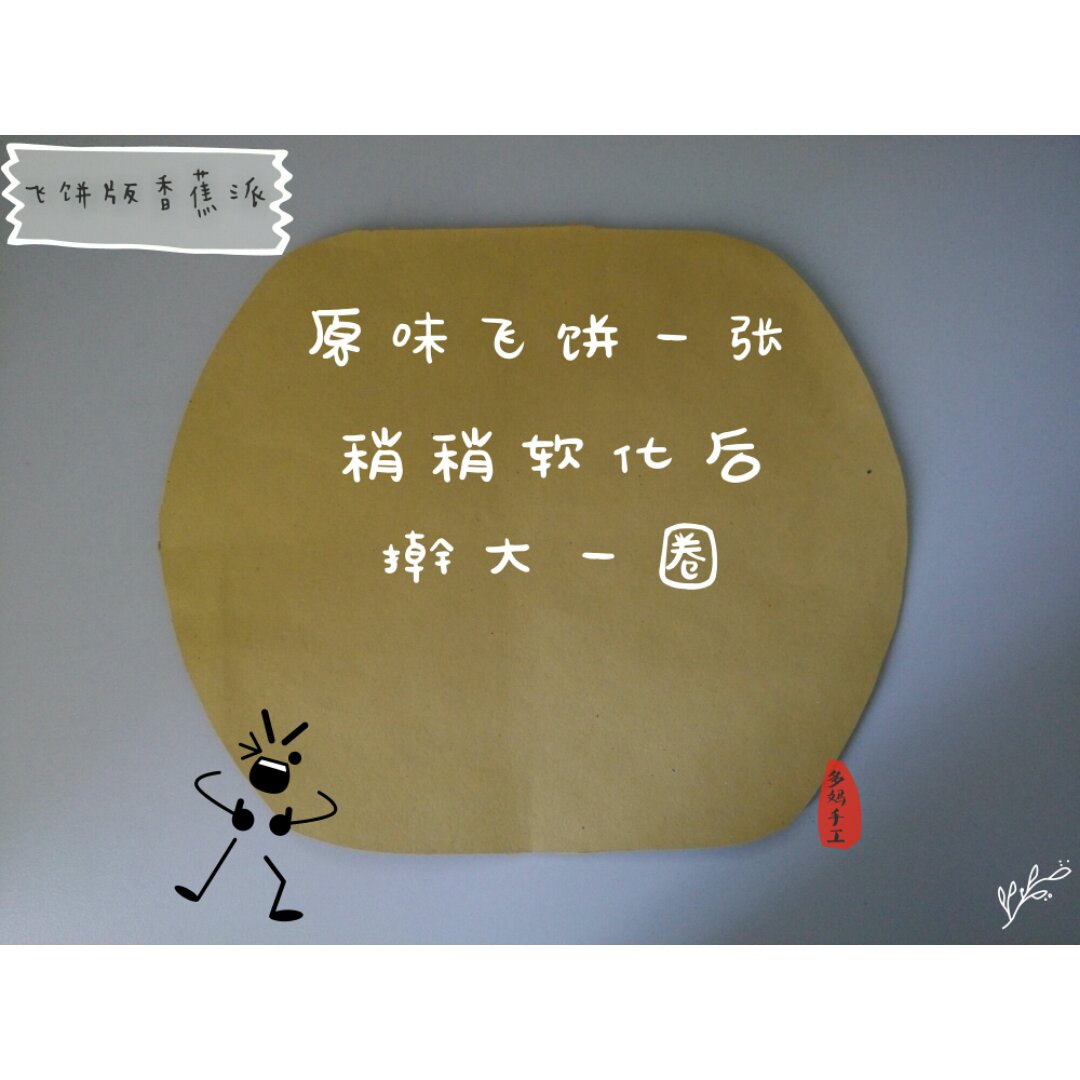 飞饼版香蕉派
原味飞饼一张
稍稍软化后
擀大一圈
多妈手工